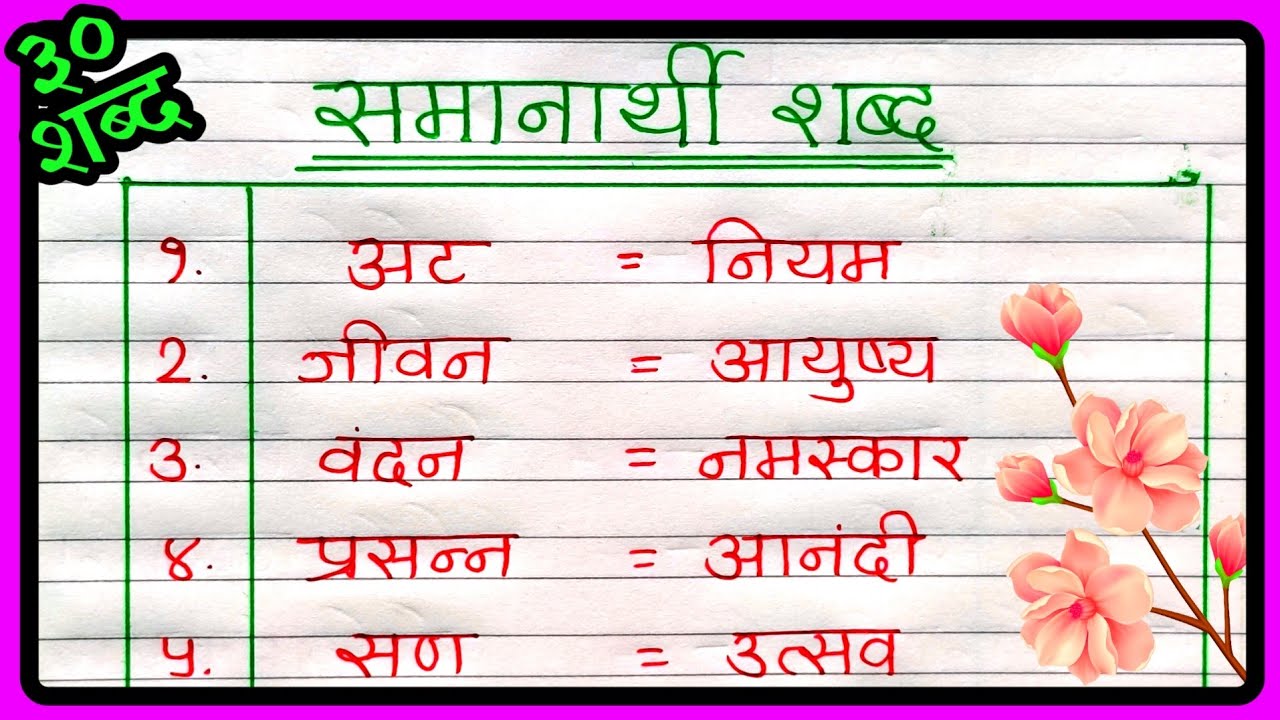 ३०
शब्द
समानार्थी शब्द
१. अट = नियम
२. जीवन = आयुष्य
३. वंदन = नमस्कार
४. प्रसन्न = आनंदी
५. सण = उत्सव